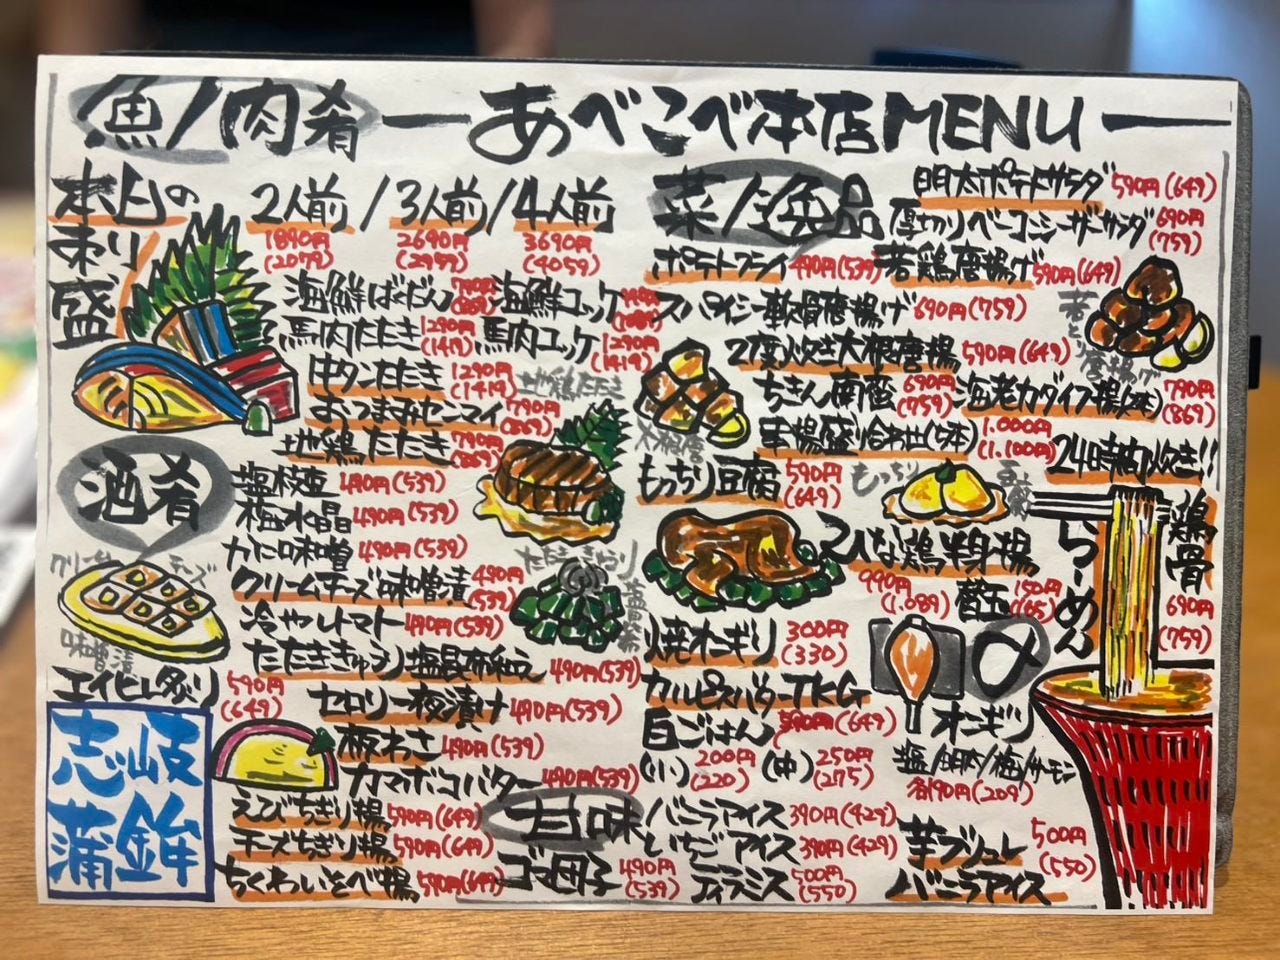 魚/肉肴
あべこべ本店MENU
本日の刺り盛
2人前/3人前/4人前
1890円(2079)
2690円(2959)
3690円(4059)
海鮮ばくだん 790円(869)
海鮮ユッケ
馬肉たたき 1290円(1419)
馬肉ユッケ 1290円(1419)
牛タンたたき 1290円(1419)
おつまみセンマイ 790円(869)
地鶏たたき 790円(869)
地鶏たたき
酒肴
塩枝豆 490円(539)
水晶 490円(539)
かに味噌 490円(539)
クリームチーズ味噌漬 490円(539)
冷やしトマト 490円(539)
たたききゅうり塩昆布和え 490円(539)
エイヒレ炙り 590円(649)
セロリ一夜漬け 490円(539)
クリームチーズ
味噌漬
たたききゅうり
塩昆布
志岐蒲鉾
板わさ 490円(539)
カマボコバター 490円(539)
えびちぎり揚 590円(649)
チーズちぎり揚 590円(649)
ちくわいそべ揚 590円(649)
菜/逸品
明太ポテトサラダ 590円(649)
厚切りベーコンシーザーサラダ 690円(759)
ポテトフライ 490円(539)
若鶏唐揚げ 590円(649)
スパイシー軟骨唐揚げ 690円(759)
2度炊き大根唐揚 590円(649)
ちきん南蛮 690円(759)
海老カダイフ揚(2本) 790円(869)
串揚盛り合わせ(5本) 1.000円(1.100円)
もっちり豆腐 590円(649)
大根唐
もっちり
豆腐
ひな鶏半身揚 990円(1.089)
24時間炊き!!
鶏骨らーめん 690円(759)
替玉 150円(165)
〆
焼オニギリ 300円(330)
カルピスバターTKG 590円(649)
白ごはん
(小) 200円(220)
(中) 250円(275)
オニギリ
塩/明太/梅/サーモン
各190円(209)
甘味
バニラアイス 390円(429)
いちごアイス 390円(429)
ゴマ団子 490円(539)
ティラミス 500円(550)
芋ブリュレとバニラアイス 500円(550)